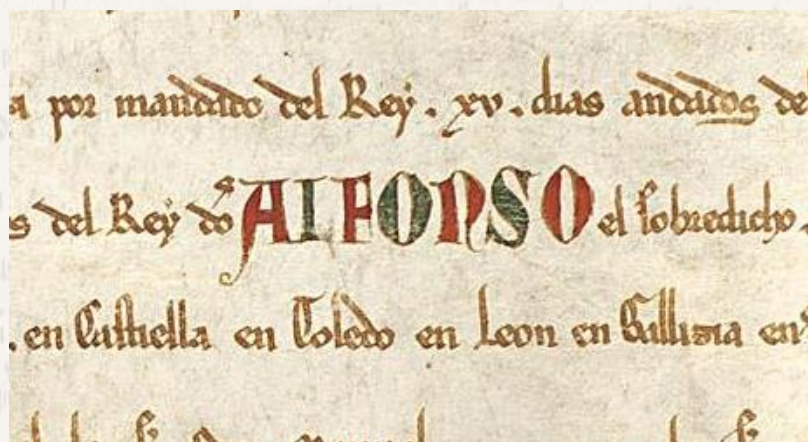 por mandado del Rey . xv . dias andados de
s del Rey do ALFONSO el sobredicho .
. en Castiella en Toledo en Leon en Gallizia en